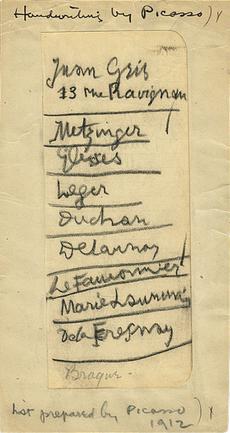 Handwriting by Picasso)
Juan Gris
13 rue Ravignan
Metzinger
Gleses
Leger
Duchan
Delaunay
Le Fauconnier
Marie Laurencin
De la Fresnay
Braque -
List prepared by Picasso)
1912